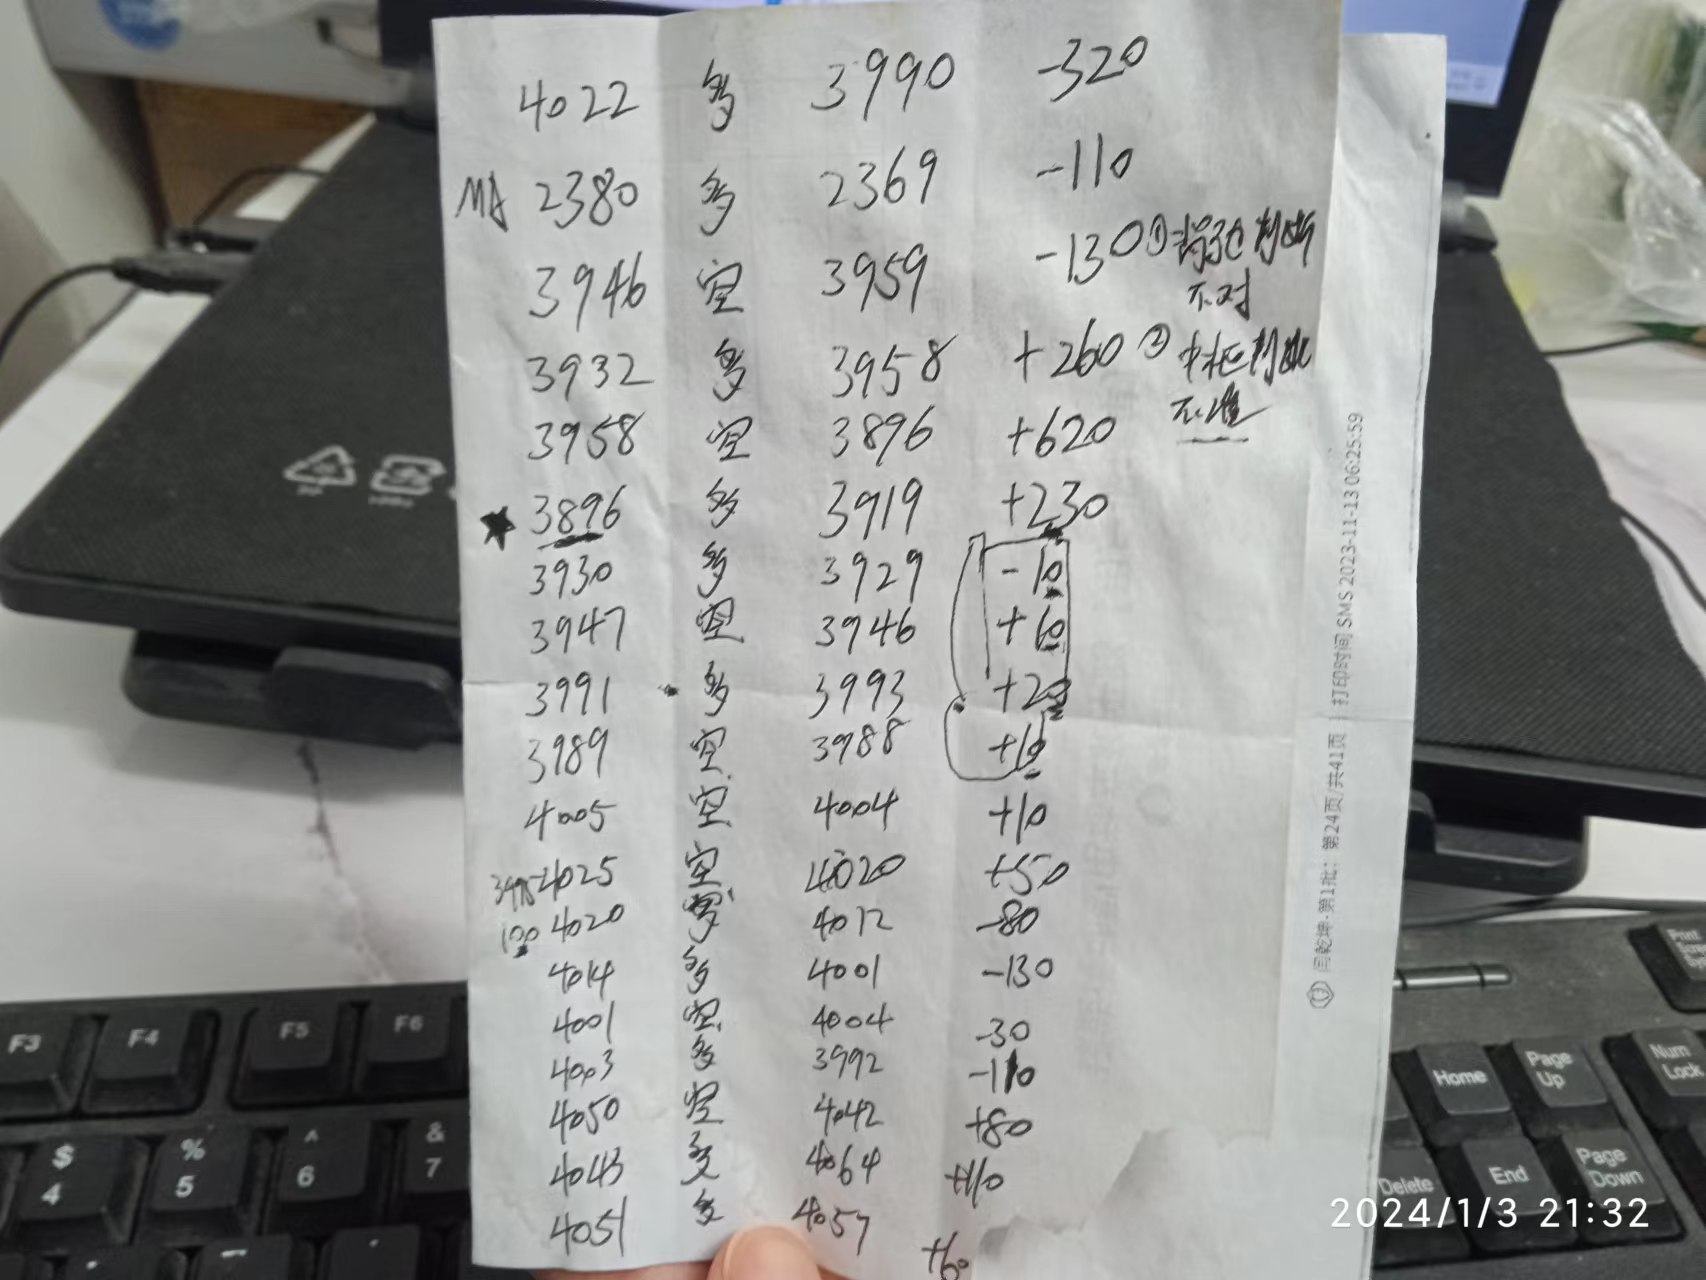 4022 多 3990 -320
MA 2380 多 2369 -110
3946 空 3959 -130 ① 背弛判断
不对
3932 多 3958 +260 ② 中枢判断
不准
3958 空 3896 +620
★ 3896 多 3919 +230
3930 多 3929 -10
3947 空 3946 +10
3991 多 3993 +20
3989 空 3988 +10
4005 空 4004 +10
4025 空 4020 +50
100 4020 多 4012 -80
4014 多 4001 -130
4001 空 4004 -30
4003 多 3992 -110
4050 空 4042 +80
4043 多 4064
4051 多 4057 +60
闫乾坤-第1批：第24页/共41页 | 打印时间 SMS 2023-11-13 06:25:59
F3 F4 F5 F6
$ 4 % 5 ^ 6 & 7
Home Page Up Num Lock
Delete End Page Down
2024/1/3 21:32